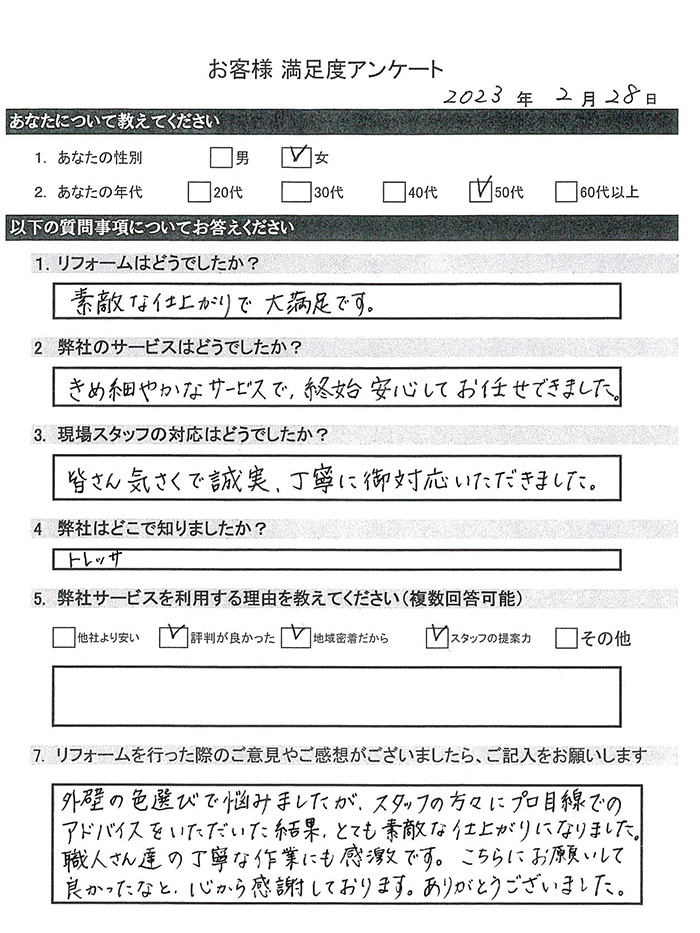 お客様 満足度アンケート
2023 年 2 月 28 日
あなたについて教えてください
1. あなたの性別 男 女
2. あなたの年代 20代 30代 40代 50代 60代以上
以下の質問事項についてお答えください
1. リフォームはどうでしたか？
素敵な仕上がりで大満足です。
2 弊社のサービスはどうでしたか？
きめ細やかなサービスで、終始安心してお任せできました。
3. 現場スタッフの対応はどうでしたか？
皆さん気さくで誠実、丁寧に御対応いただきました。
4 弊社はどこで知りましたか？
トレッサ
5. 弊社サービスを利用する理由を教えてください（複数回答可能）
他社より安い 評判が良かった 地域密着だから スタッフの提案力 その他
7. リフォームを行った際のご意見やご感想がございましたら、ご記入をお願いします
外壁の色選びで悩みましたが、スタッフの方々にプロ目線での
アドバイスをいただいた結果、とても素敵な仕上がりになりました。
職人さん達の丁寧な作業にも感激です。こちらにお願いして
良かったなと、心から感謝しております。ありがとうございました。